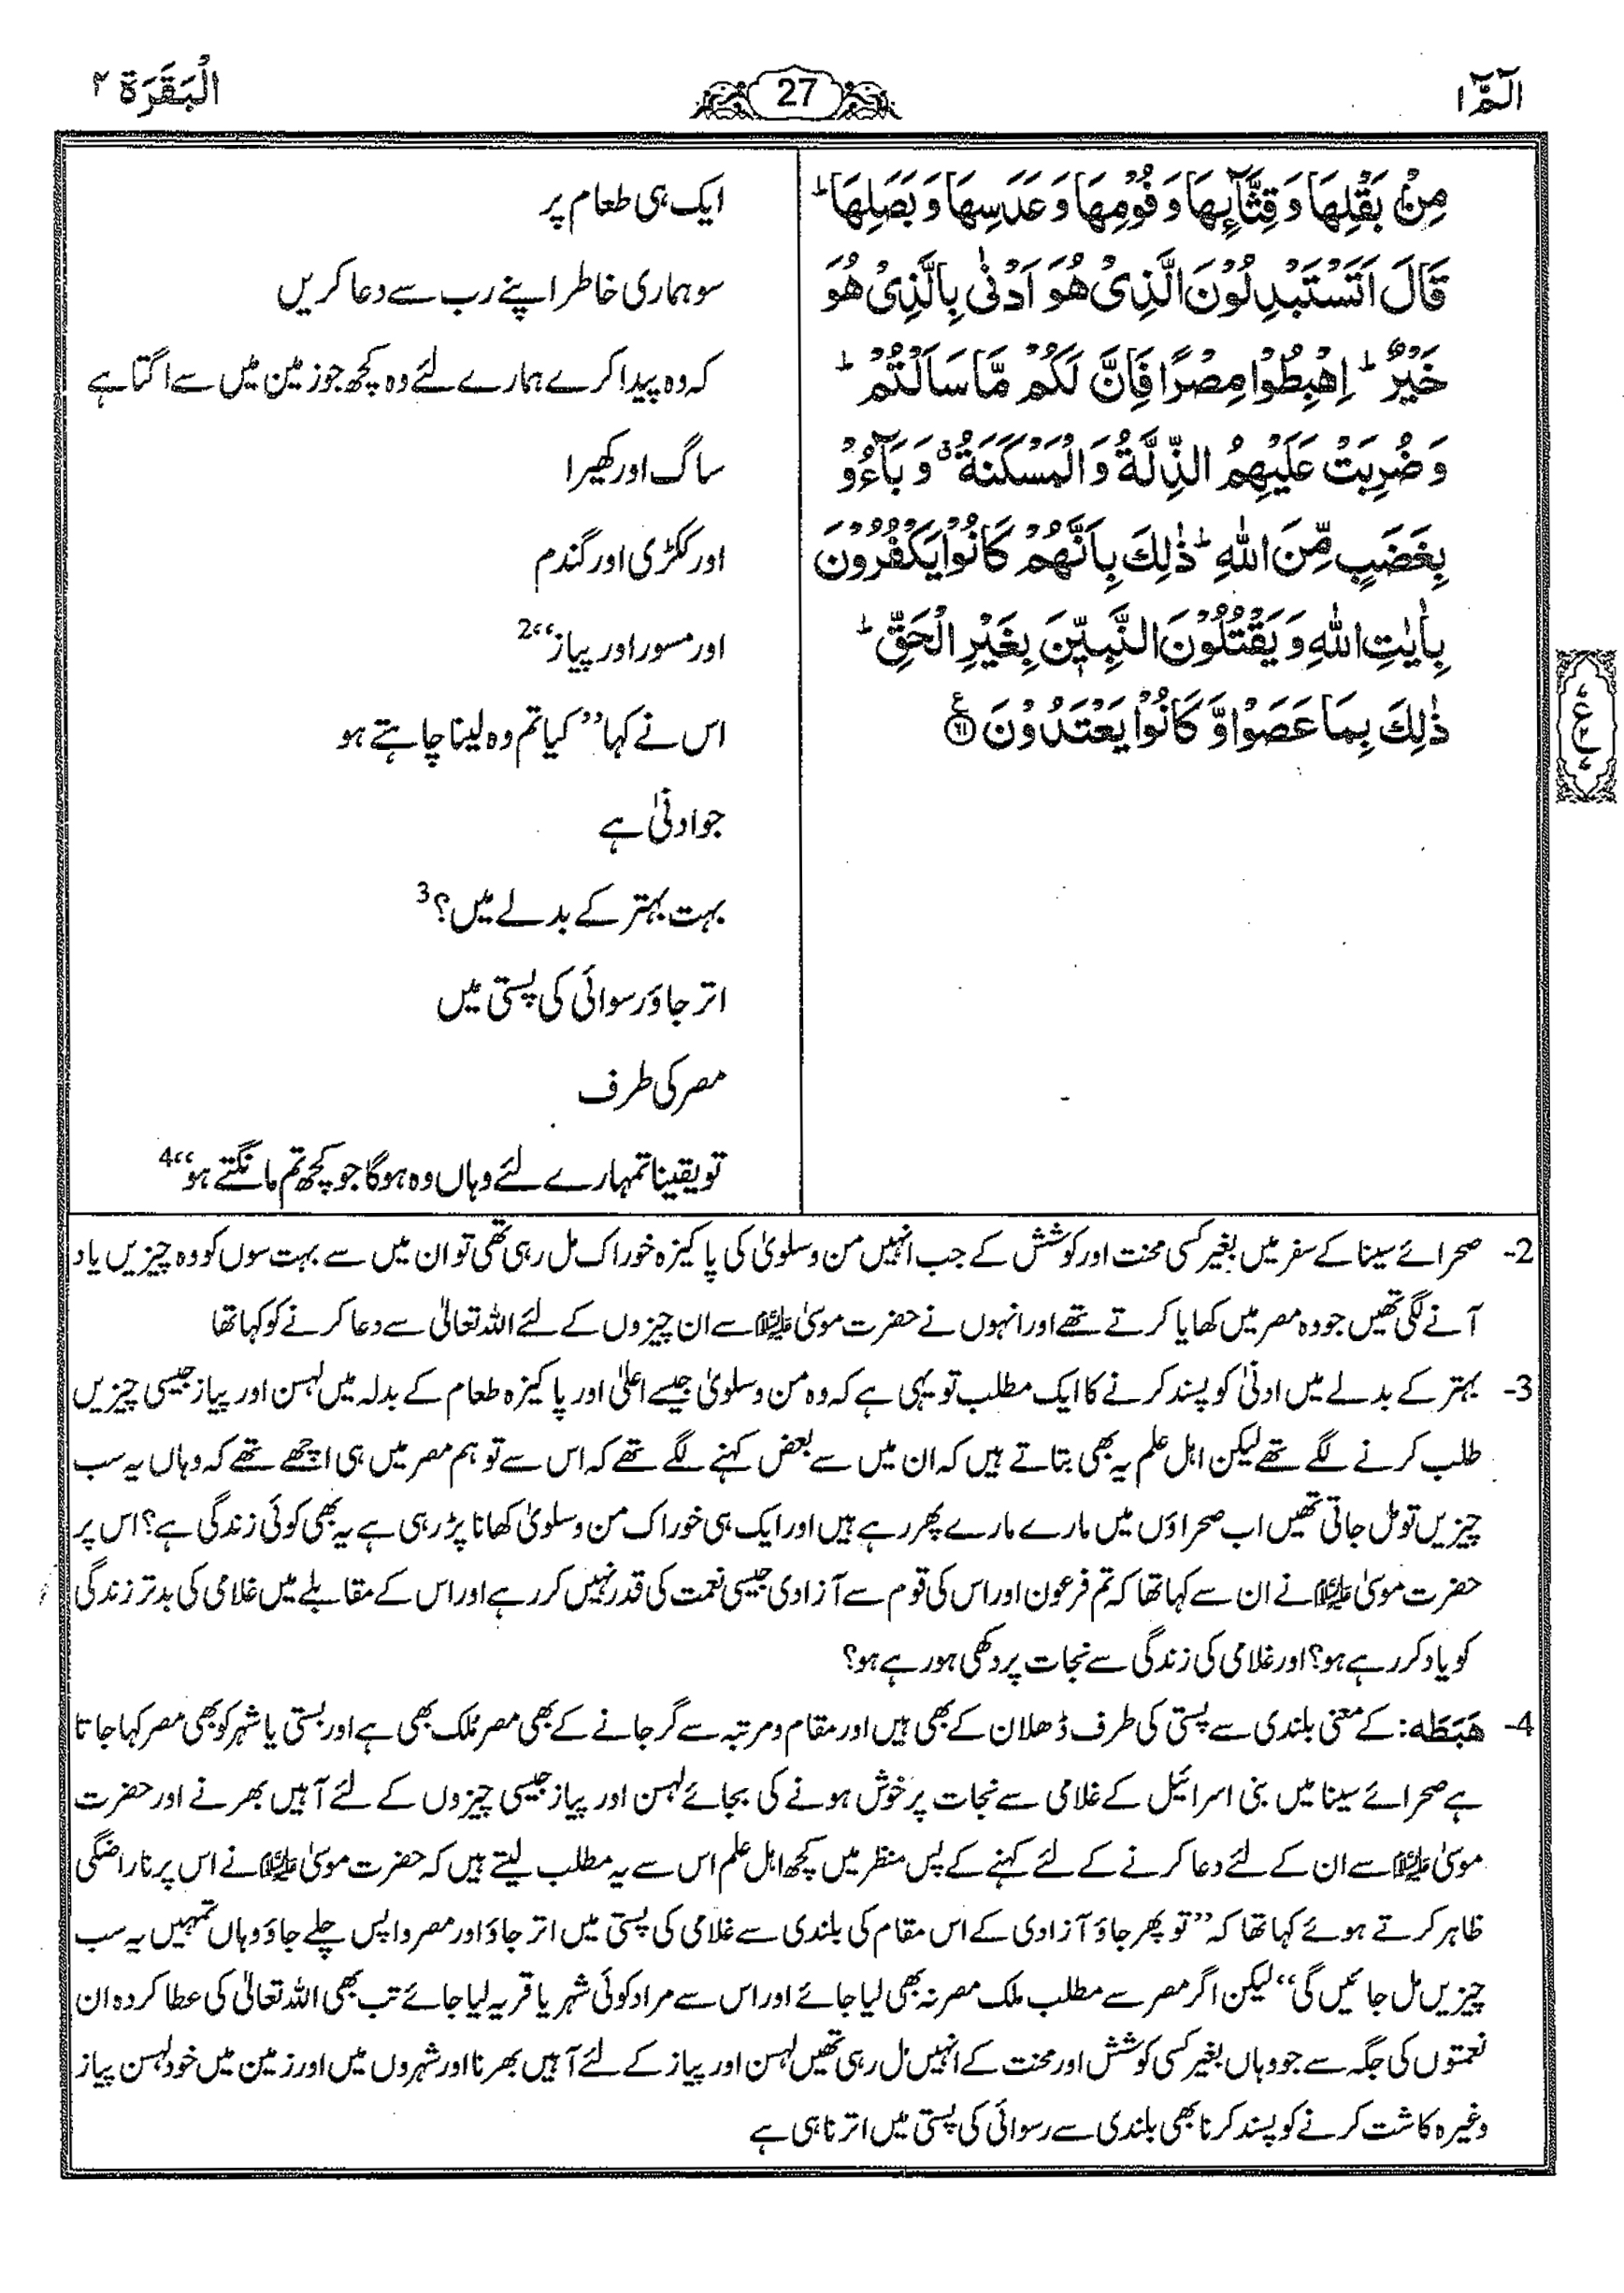 الٓمّٓ ١
27
اَلْبَقَرَة ٢
مِنْۢ بَقْلِهَا وَ قِثَّآىِٕهَا وَ فُوْمِهَا وَ عَدَسِهَا وَ بَصَلِهَا ؕ
قَالَ اَتَسْتَبْدِلُوْنَ الَّذِیْ هُوَ اَدْنٰی بِالَّذِیْ هُوَ
خَیْرٌ ؕ اِهْبِطُوْا مِصْرًا فَاِنَّ لَكُمْ مَّا سَاَلْتُمْ ؕ
وَ ضُرِبَتْ عَلَیْهِمُ الذِّلَّةُ وَ الْمَسْكَنَةُ ۗ وَ بَآءُوْ
بِغَضَبٍ مِّنَ اللّٰهِ ؕ ذٰلِكَ بِاَنَّهُمْ كَانُوْا یَكْفُرُوْنَ
بِاٰیٰتِ اللّٰهِ وَ یَقْتُلُوْنَ النَّبِیّٖنَ بِغَیْرِ الْحَقِّ ؕ
ذٰلِكَ بِمَا عَصَوْا وَّ كَانُوْا یَعْتَدُوْنَ ۟ ٦١ ع
ع
ایک ہی طعام پر
سو ہماری خاطر اپنے رب سے دعا کریں
کہ وہ پیدا کرے ہمارے لئے وہ کچھ جو زمین میں سے اگتا ہے
ساگ اور کھیرا
اور ککڑی اور گندم
اور مسور اور پیاز‘‘2
اس نے کہا ’’کیا تم وہ لینا چاہتے ہو
جو ادنیٰ ہے
بہت بہتر کے بدلے میں؟3
اتر جاؤ رسوائی کی پستی میں
مصر کی طرف
تو یقینا تمہارے لئے وہاں وہ ہوگا جو کچھ تم مانگتے ہو‘‘4
2- صحرائے سینا کے سفر میں بغیر کسی محنت اور کوشش کے جب انہیں من و سلویٰ کی پاکیزہ خوراک مل رہی تھی تو ان میں سے بہت سوں کو وہ چیزیں یاد
آنے لگی تھیں جو وہ مصر میں کھایا کرتے تھے اور انہوں نے حضرت موسیٰ علیہ السلام سے ان چیزوں کے لئے اللہ تعالیٰ سے دعا کرنے کو کہا تھا
3- بہتر کے بدلے میں ادنیٰ کو پسند کرنے کا ایک مطلب تو یہی ہے کہ وہ من و سلویٰ جیسے اعلیٰ اور پاکیزہ طعام کے بدلہ میں لہسن اور پیاز جیسی چیزیں
طلب کرنے لگے تھے لیکن اہل علم یہ بھی بتاتے ہیں کہ ان میں سے بعض کہنے لگے تھے کہ اس سے تو ہم مصر میں ہی اچھے تھے کہ وہاں یہ سب
چیزیں تو مل جاتی تھیں اب صحراؤں میں مارے مارے پھر رہے ہیں اور ایک ہی خوراک من و سلویٰ کھانا پڑ رہی ہے یہ بھی کوئی زندگی ہے؟ اس پر
حضرت موسیٰ علیہ السلام نے ان سے کہا تھا کہ تم فرعون اور اس کی قوم سے آزادی جیسی نعمت کی قدر نہیں کر رہے اور اس کے مقابلے میں غلامی کی بدتر زندگی
کو یاد کر رہے ہو؟ اور غلامی کی زندگی سے نجات پر دکھی ہو رہے ہو؟
4- هَبَطَه: کے معنی بلندی سے پستی کی طرف ڈھلان کے بھی ہیں اور مقام و مرتبہ سے گر جانے کے بھی مصر مُلک بھی ہے اور بستی یا شہر کو بھی مصر کہا جاتا
ہے صحرائے سینا میں بنی اسرائیل کے غلامی سے نجات پر خوش ہونے کی بجائے لہسن اور پیاز جیسی چیزوں کے لئے آہیں بھرنے اور حضرت
موسیٰ علیہ السلام سے ان کے لئے دعا کرنے کے لئے کہنے کے پس منظر میں کچھ اہل علم اس سے یہ مطلب لیتے ہیں کہ حضرت موسیٰ علیہ السلام نے اس پر ناراضگی
ظاہر کرتے ہوئے کہا تھا کہ ’’تو پھر جاؤ آزادی کے اس مقام کی بلندی سے غلامی کی پستی میں اتر جاؤ اور مصر واپس چلے جاؤ وہاں تمہیں یہ سب
چیزیں مل جائیں گی‘‘ لیکن اگر مصر سے مطلب ملک مصر نہ بھی لیا جائے اور اس سے مراد کوئی شہر یا قریہ لیا جائے تب بھی اللہ تعالیٰ کی عطا کردہ ان
نعمتوں کی جگہ سے جو وہاں بغیر کسی کوشش اور محنت کے انہیں مل رہی تھیں لہسن اور پیاز کے لئے آہیں بھرنا اور شہروں میں اور زمین میں خود لہسن پیاز
وغیرہ کاشت کرنے کو پسند کرنا بھی بلندی سے رسوائی کی پستی میں اترنا ہی ہے